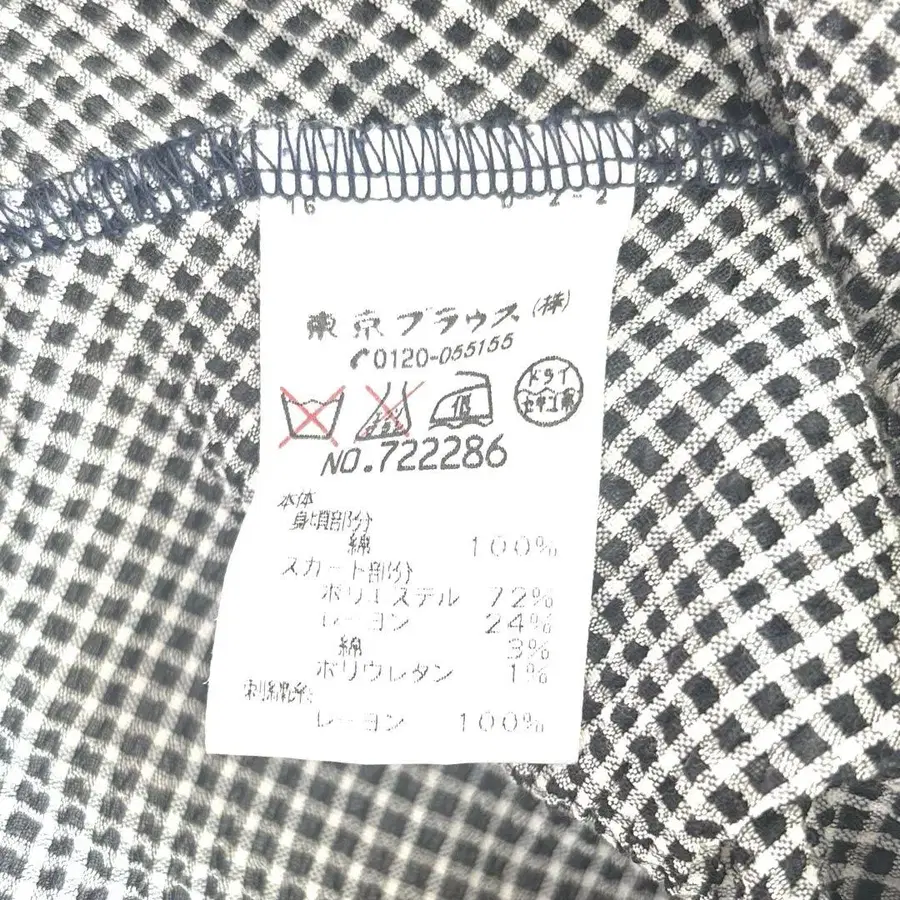 16
東京ブラウス(株)
0120-055155
ドライ
セキユ系
NO.722286
本体
身頃部分
綿 100%
スカート部分
ポリエステル 72%
レーヨン 24%
綿 3%
ポリウレタン 1%
刺繍糸
レーヨン 100%